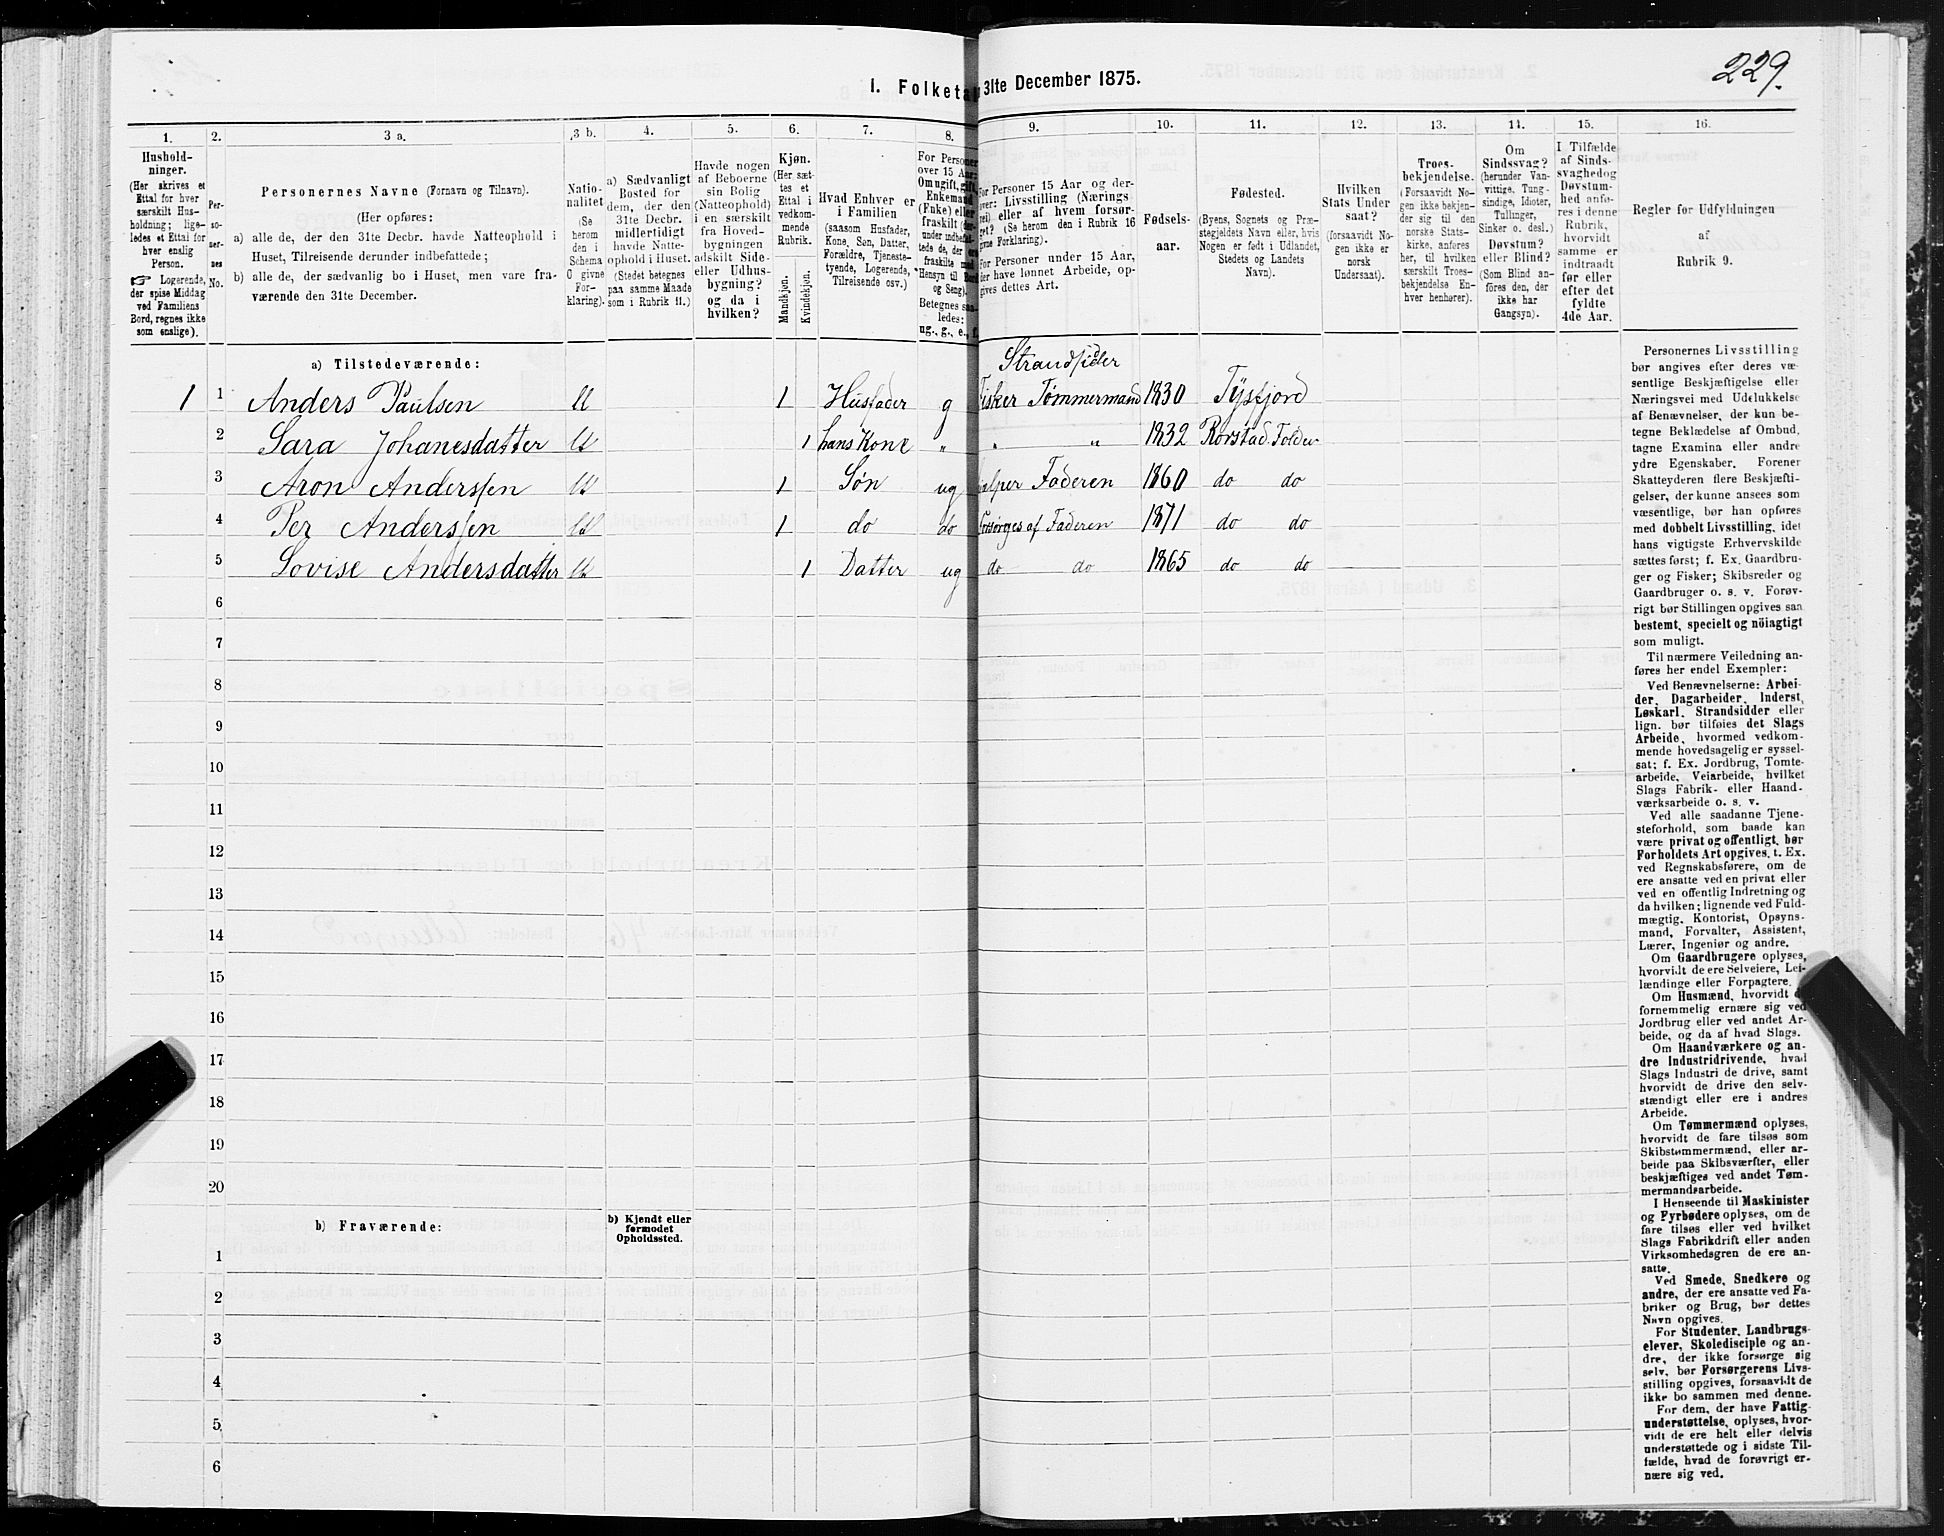 229.
I. Folketal 31te December 1875.
1. 2. 3 a. 3 b. 4. 5. 6. 7. 8. 9. 10. 11. 12. 13. 14. 15. 16.
Hushold-
ninger.
(Her skrives et
Ettal for hver
særskilt Hus-
holdning; lige-
ledes et Ettal for
hver enslig
Person.
☞ Logerende,
der spise Middag
ved Familiens
Bord, regnes ikke
som enslige).
Per-
so-
ner-
nes
No.
Personernes Navne (Fornavn og Tilnavn).
(Her opføres:
a) alle de, der den 31te Decbr. havde Natteophold i
Huset, Tilreisende derunder indbefattede;
b) alle de, der sædvanlig bo i Huset, men vare fra-
værende den 31te December.
Natio-
nalitet
(Se
herom
den i
Schema
O givne
For-
klaring).
a) Sædvanligt
Bosted for
dem, der den
31te Decbr.
midlertidigt
havde Natte-
ophold i Huset.
(Stedet betegnes
paa samme Maade
som i Rubrik 11.)
Havde nogen
af Beboerne
sin Bolig
(Natteophold)
i en særskilt
fra Hoved-
bygningen
adskilt Side-
eller Udhus-
bygning?
og da i
hvilken?
Kjøn.
(Her sæt-
tes et
Ettal i
vedkom-
mende
Rubrik.
Mandkjøn.
Kvindekjøn.
Hvad Enhver er
i Familien
(saasom Husfader,
Kone, Søn, Datter,
Forældre, Tjeneste-
tyende, Logerende,
Tilreisende osv.)
For Personer
over 15 Aar:
Om ugift, gift,
Enkemand
(Enke) eller
fraskilt (der-
under indbefat-
tede de, der ere
fraskilte med
Hensyn til Bord
og Seng).
Betegnes saa-
ledes:
ug., g., e., f.
For Personer 15 Aar og der-
over: Livsstilling (Nærings-
vei) eller af hvem forsør-
get? (Se herom den i Rubrik 16
givne Forklaring).
For Personer under 15 Aar,
der have lønnet Arbeide, op-
gives dettes Art.
Fødsels-
aar.
Fødested.
(Byens, Sognets og Præ-
stegjeldets Navn eller, hvis
Nogen er født i Udlandet,
Stedets og Landets
Navn).
Hvilken
Stats Under
saat?
(forsaavidt No-
gen ikke er
norsk
Undersaat).
Troes-
bekjendelse.
(Forsaavidt No-
gen ikke bekjen-
der sig til den
norske Stats-
kirke, anføres
her, til hvilken
særskilt Troes-
bekjendelse En-
hver henhører).
Om
Sindssvag?
(herunder Van-
vittige, Tung-
sindige, Idioter,
Tullinger,
Sinker o. desl.)
Døvstum?
eller Blind?
(Som Blind an-
føres den, der
ikke har
Gangsyn).
I Tilfælde
af Sinds-
svaghedog
Døvstum-
hed anfø-
res i denne
Rubrik,
hvorvidt
samme er
indtraadt
før eller
efter det
fyldte
4de Aar.
Regler før Udfyldningen
af
Rubrik 9.
a) Tilstedeværende:
Strandsider
1 1 Anders Paulsen U 1 Husfader g Fisker Tømmermand 1830 Tysfjord
2 Sara Johanesdatter U 1 hans Kone „ „ „ 1832 Rørstad Folden
3 Aron Anderssen U 1 Søn ug hjælper Faderen 1860 do do
4 Per Anderssen U 1 do do Forsørges af Faderen 1871 do do
5 Lovise Andersdatter U 1 Datter ug do do 1865 do do
6
7
8
9
10
11
12
13
14
15
16
17
18
19
20
b) Fraværende:
b) Kjendt eller
formodet
Opholdssted.
1
2
3
4
5
6
Personernes Livsstilling
bør angives efter deres væ-
sentlige Beskjæftigelse eller
Næringsvei med Udelukkelse
af Benævnelser, der kun be-
tegne Beklædelse af Ombud,
tagne Examina eller andre
ydre Egenskaber. Forener
Skatteyderen flere Beskjæfti-
gelser, der kunne ansees som
væsentlige, bør han opføres
med dobbelt Livsstilling, idet
hans vigtigste Erhvervskilde
sættes først; f. Ex. Gaardbru-
ger og Fisker; Skibsreder og
Gaardbruger o. s. v. Forøv-
rigt bør Stillingen opgives saa
bestemt, specielt og nöiagtigt
som muligt.
Til nærmere Veiledning an-
føres her endel Exempler:
Ved Benævnelserne: Arbei-
der, Dagarbeider, Inderst,
Løskarl, Strandsidder eller
lign. bør tilføies det Slags
Arbeide, hvormed vedkom-
mende hovedsagelig er syssel-
sat; f. Ex. Jordbrug, Tomte-
arbeide, Veiarbeide, hvilket
Slags Fabrik- eller Haand-
værksarbeide o. s. v.
Ved alle saadanne Tjene-
steforhold, som baade kan
være privat og offentligt, bør
Forholdets Art opgives, t. Ex.
ved Regnskabsførere, om de
ere ansatte ved en privat eller
ved en offentlig Indretning og
da hvilken; lignende ved Fuld-
mægtig, Kontorist, Opsyns-
mand, Forvalter, Assistent,
Lærer, Ingeniør og andre.
Om Gaardbrugere oplyses,
hvorvidt de ere Selveiere, Lei-
lændinge eller Forpagtere.
Om Husmænd, hvorvidt de
fornemmelig ernære sig ved
Jordbrug eller ved andet Ar-
beide, og da af hvad Slags.
Om Haandværkere og an-
dre Industridrivende, hvad
Slags Industri de drive, samt
hvorvidt de drive den selv-
stændigt eller ere i andres
Arbeide.
Om Tømmermænd oplyses,
hvorvidt de fare tilsøs som
Skibstømmermænd, eller ar-
beide paa Skibsværfter, eller
beskjæftiges ved andet Tøm-
mermandsarbeide.
I Henseende til Maskinister
og Fyrbødere oplyses, om de
fare tilsøs eller ved hvilket
Slags Fabrikdrift eller anden
Virksomhedsgren de ere an-
satte.
Ved Smede, Snedkere og
andre, der ere ansatte ved Fa-
briker og Brug, bør dettes
Navn opgives.
For Studenter, Landbrugs-
elever, Skoledisciple og an-
dre, der ikke forsørge sig
selv, bør Forsørgerens Livs-
stilling opgives, forsaavidt de
ikke bo sammen med denne.
For dem, der have Fattig-
understøttelse, oplyses, hvor-
vidt de ere helt eller delvis
understøttede og i sidste Til-
fælde, hvad de forøvrigt er-
nære sig ved.